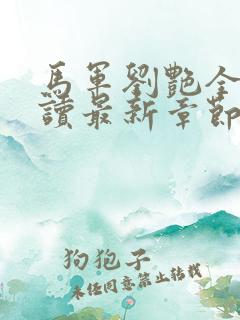 馬軍劉艷全
讀最新章節
狗狍子
未经同意禁止转载